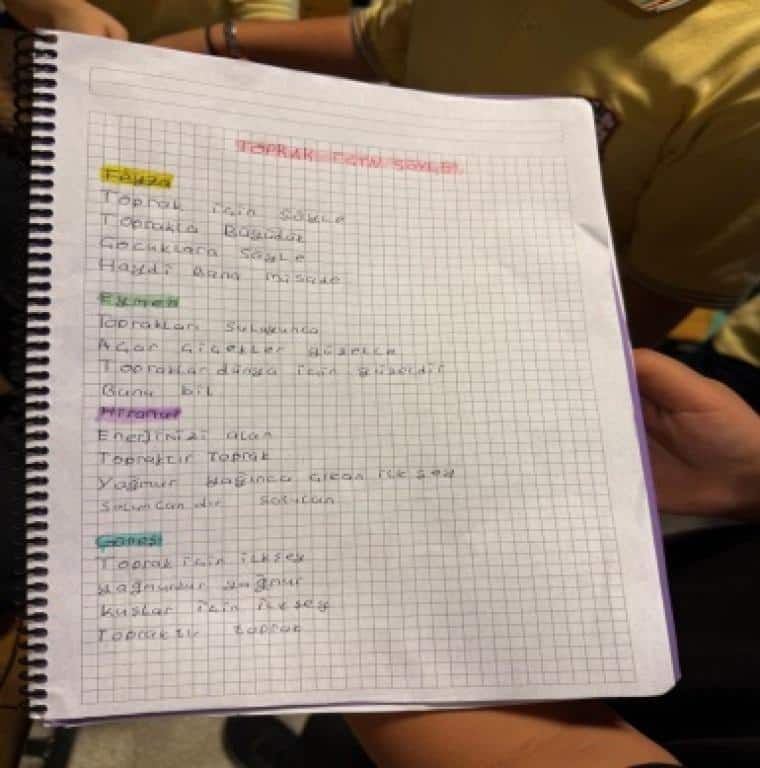 TOPRAK İÇİN SÖYLE!
Toprak için söyle
Toprakla Büyüdük
Çocuklara söyle
Haydi Bana
Eymen
Topraklar
Açar çiçekler güzelce
Topraklar dünya için güzeldir
Bunu bil
Miranur
Enerjinizi alan
Topraktır Toprak
Yağmur yağınca çıkan ilk şey
Solucan dır solucan
Toprak için ilkşey
yağmurdur yağmur
kuşlar için ilk şey
Topraktır toprak